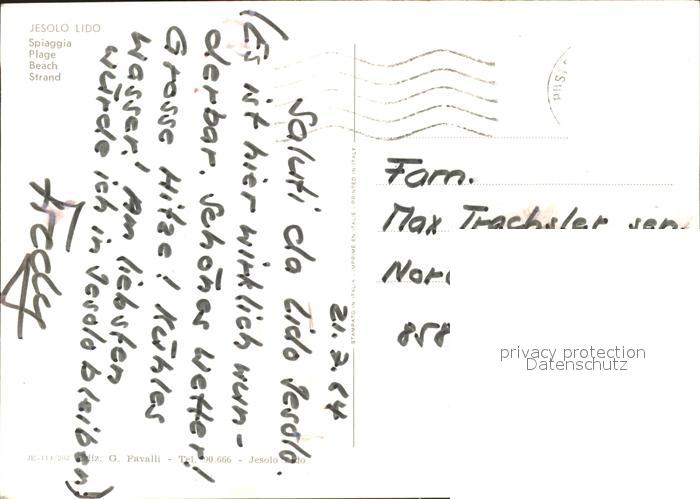 JESOLO LIDO
Spiaggia
Plage
Beach
Strand
21.7.64
Saluti da Lido Jesolo.
(Es ist hier wirklich wun-
derbar. Schönes Wetter!
Grosse Hitze! Kühles
Wasser! Am liebsten
würde ich in Jesolo bleiben)
Fam.
Max Trachsler sen.
858
STAMPATO IN ITALIA - IMPRIMÉ EN ITALIE - PRINTED IN ITALY
G. Favalli - Tel. 90.666 - Jesolo Lido
privacy protection
Datenschutz